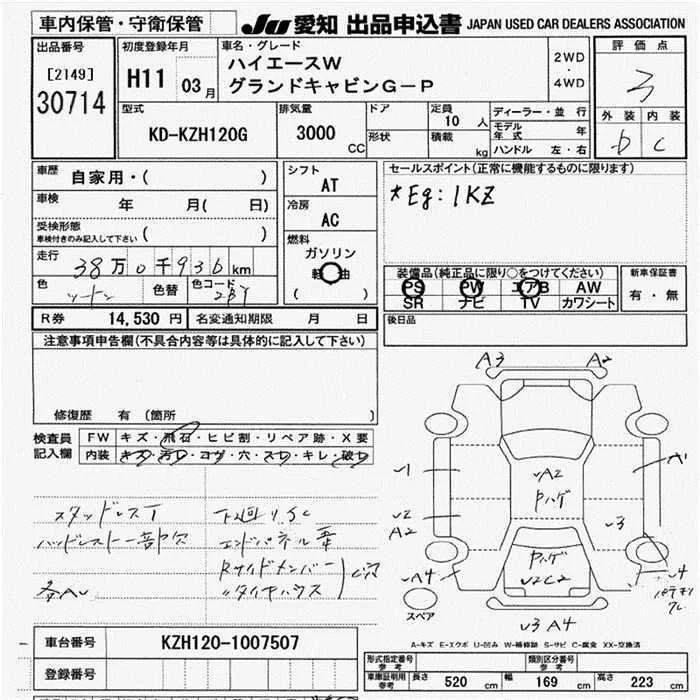 車内保管・守衛保管
JU 愛知 出品申込書 JAPAN USED CAR DEALERS ASSOCIATION
出品番号
[2149]
30714
初度登録年月
H11 03月
車名・グレード
ハイエースW
グランドキャビンG-P
2WD
・
4WD
評価点
3
外装 内装
b c
型式
KD-KZH120G
排気量
3000 CC
ドア
形状
定員
10 人
積載 kg
ディーラー・並行
モデル年式 年
ハンドル 左・右
車歴 自家用・( )
車検 年 月( 日)
受検形態
車検付きのみ記入して下さい ( )
走行 38万0千936km
色 ツートン 色替 色コード 2BY
シフト
AT
冷房
AC
燃料
ガソリン
軽油
( )
セールスポイント(正常に機能するものに限ります)
*Eg:1KZ
装備品(純正品に限り○をつけてください)
PS PW エアB AW
SR ナビ TV カワシート
新車保証書
有・無
R券 14,530円 名変通知期限 月 日
後日品
注意事項申告欄(不具合内容等は具体的に記入して下さい)
修復歴 有 (箇所 )
検査員記入欄
FW キズ・飛石・ヒビ割・リペア跡・X要
内装 キズ・汚れ・コゲ・穴・スレ・キレ・破れ
スタッドレスT
ハッドレスト一部欠
各AU
下廻りSC
エンドパネル
Rサイドメンバー
〃タイヤハウス
C穴
A3 A2
U1
U2
A2
UA2
Pハゲ
A1
U3
Pハゲ
U2C2
UA4
U4
U3 A4
スペア
A-キズ E-エクボ U-凹み W-補修跡 S-サビ C-腐食 XX-交換済
車台番号 KZH120-1007507
登録番号
形式指定番号
参考
類別区分番号
参考
車庫証明用参考 長さ 520 cm 幅 169 cm 高さ 223 cm